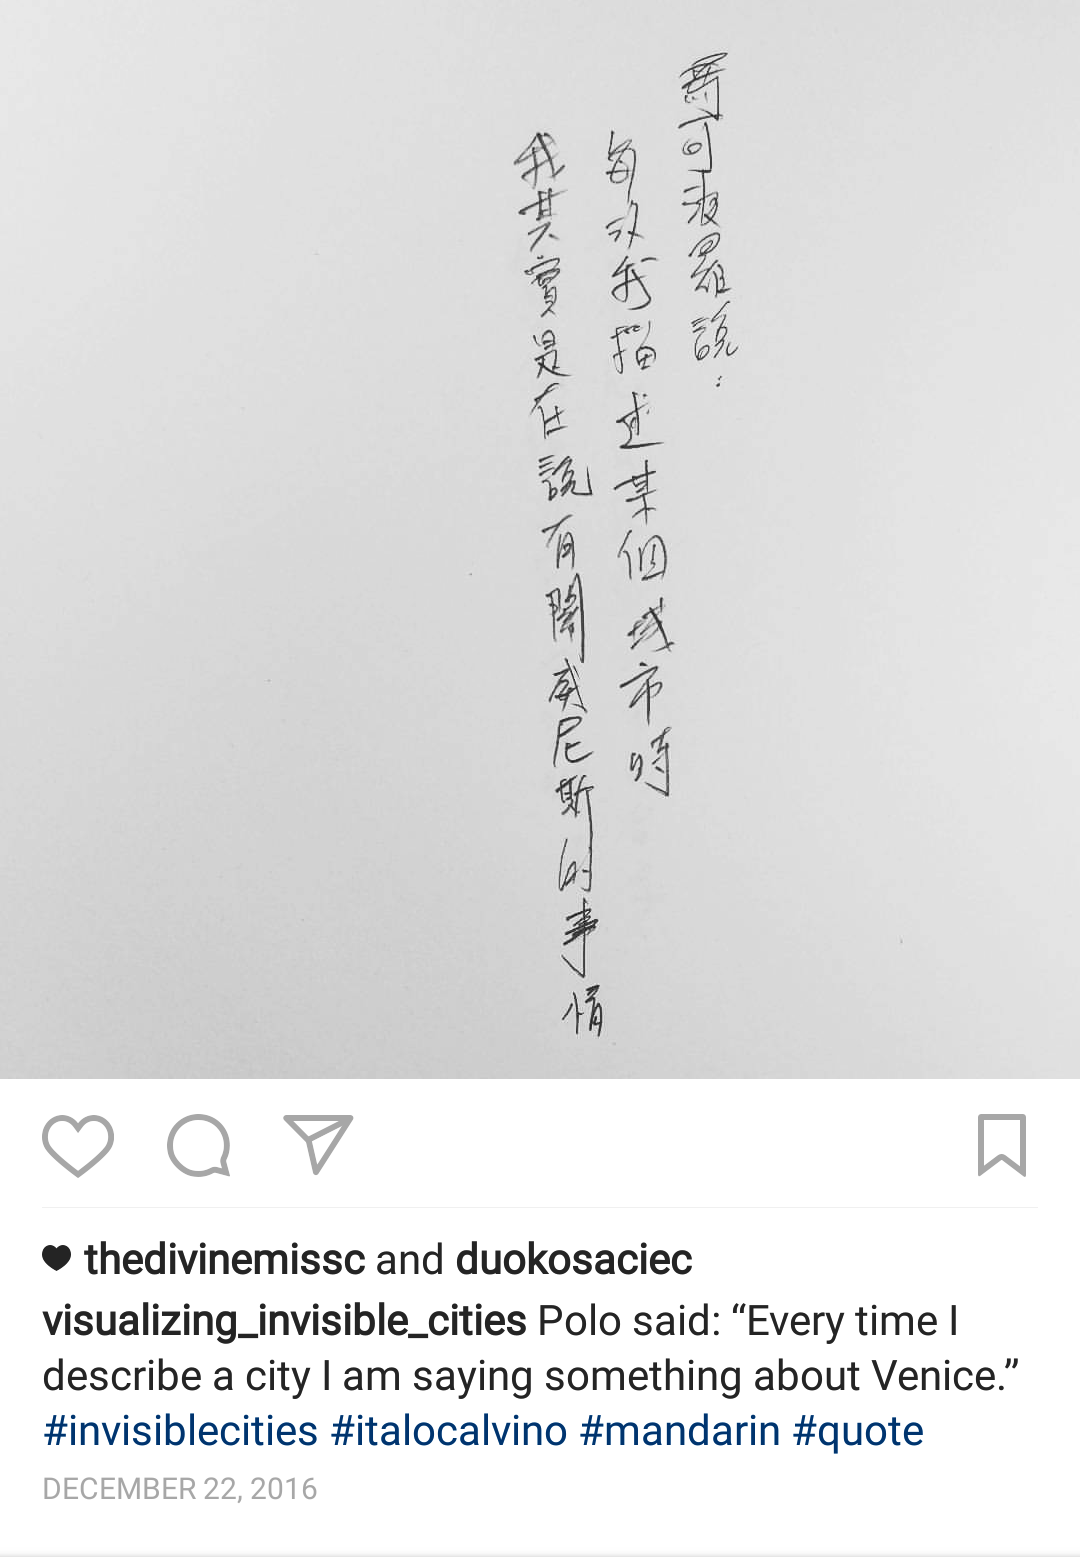 馬可波羅說：
每次我描述某個城市時
我其實是在說有關威尼斯的事情
thedivinemissc and duokosaciec
visualizing_invisible_cities Polo said: “Every time I
describe a city I am saying something about Venice.”
#invisiblecities #italocalvino #mandarin #quote
DECEMBER 22, 2016